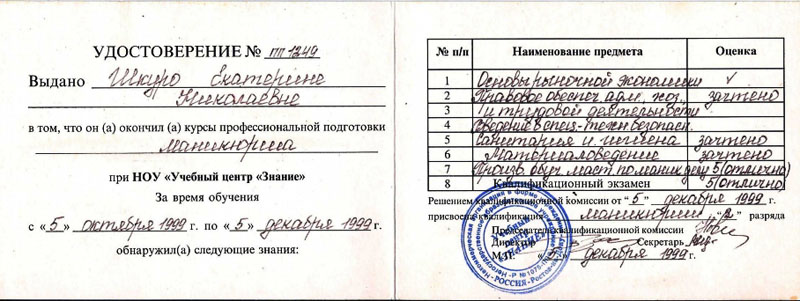 УДОСТОВЕРЕНИЕ № ПП 1249
Выдано Шкуро Екатерине
Николаевне
в том, что он (а) окончил (а) курсы профессиональной подготовки
маникюрша
при НОУ «Учебный центр «Знание»
За время обучения
с «5» октября 1999 г. по «5» декабря 1999 г.
обнаружил(а) следующие знания:
№ п/п Наименование предмета Оценка
1 Основы рыночной экономики ✓
2 Правовое обеспеч. адм., хоз., зачтено
3 и трудовой деятельности
4 Сведения в спец. техн. безопасн.
5 Санитария и гигиена зачтено
6 Материаловедение зачтено
7 Произв. обуч. маст. по маник. делу 5 (отлично)
8 Квалификационный экзамен 5 (отлично)
Решением квалификационной комиссии от "5" декабря 1999 г.
присвоена квалификация маникюрши "2" разряда
Председатель квалификационной комиссии
Директор Секретарь
М.П. «5» декабря 1999 г.
Учебный
центр
"ЗНАНИЕ"
РОССИЯ